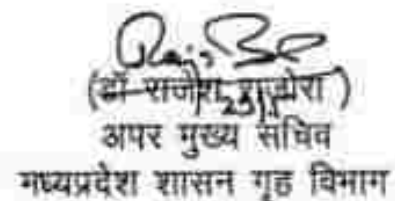 (डॉ राजेश राजोरा)
अपर मुख्य सचिव
मध्यप्रदेश शासन गृह विभाग